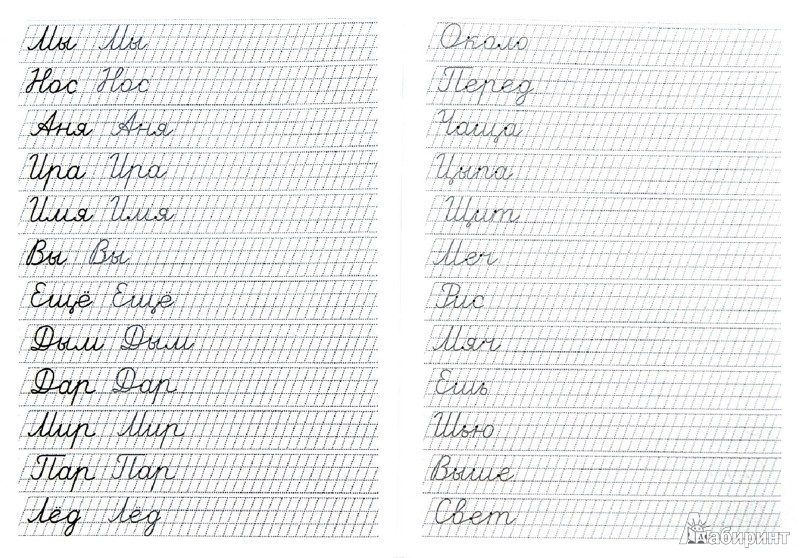 Мы Мы
Нос Нос
Аня Аня
Ира Ира
Имя Имя
Вы Вы
Ещё Ещё
Дым Дым
Дар Дар
Мир Мир
Пар Пар
Лёд Лёд
Около
Перед
Чаща
Цыпа
Щит
Меч
Рис
Мяч
Ешь
Шью
Выше
Свет
Лабиринт